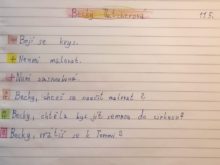 Becky Thatcherová 115.
- Bojí se krys.
+ Neumí malovat.
+ Není zasnoubená.
Becky, chceš se naučit malovat?
Becky, chtěla bys jít se mnou do
Becky, vrátíš se k Tomovi?